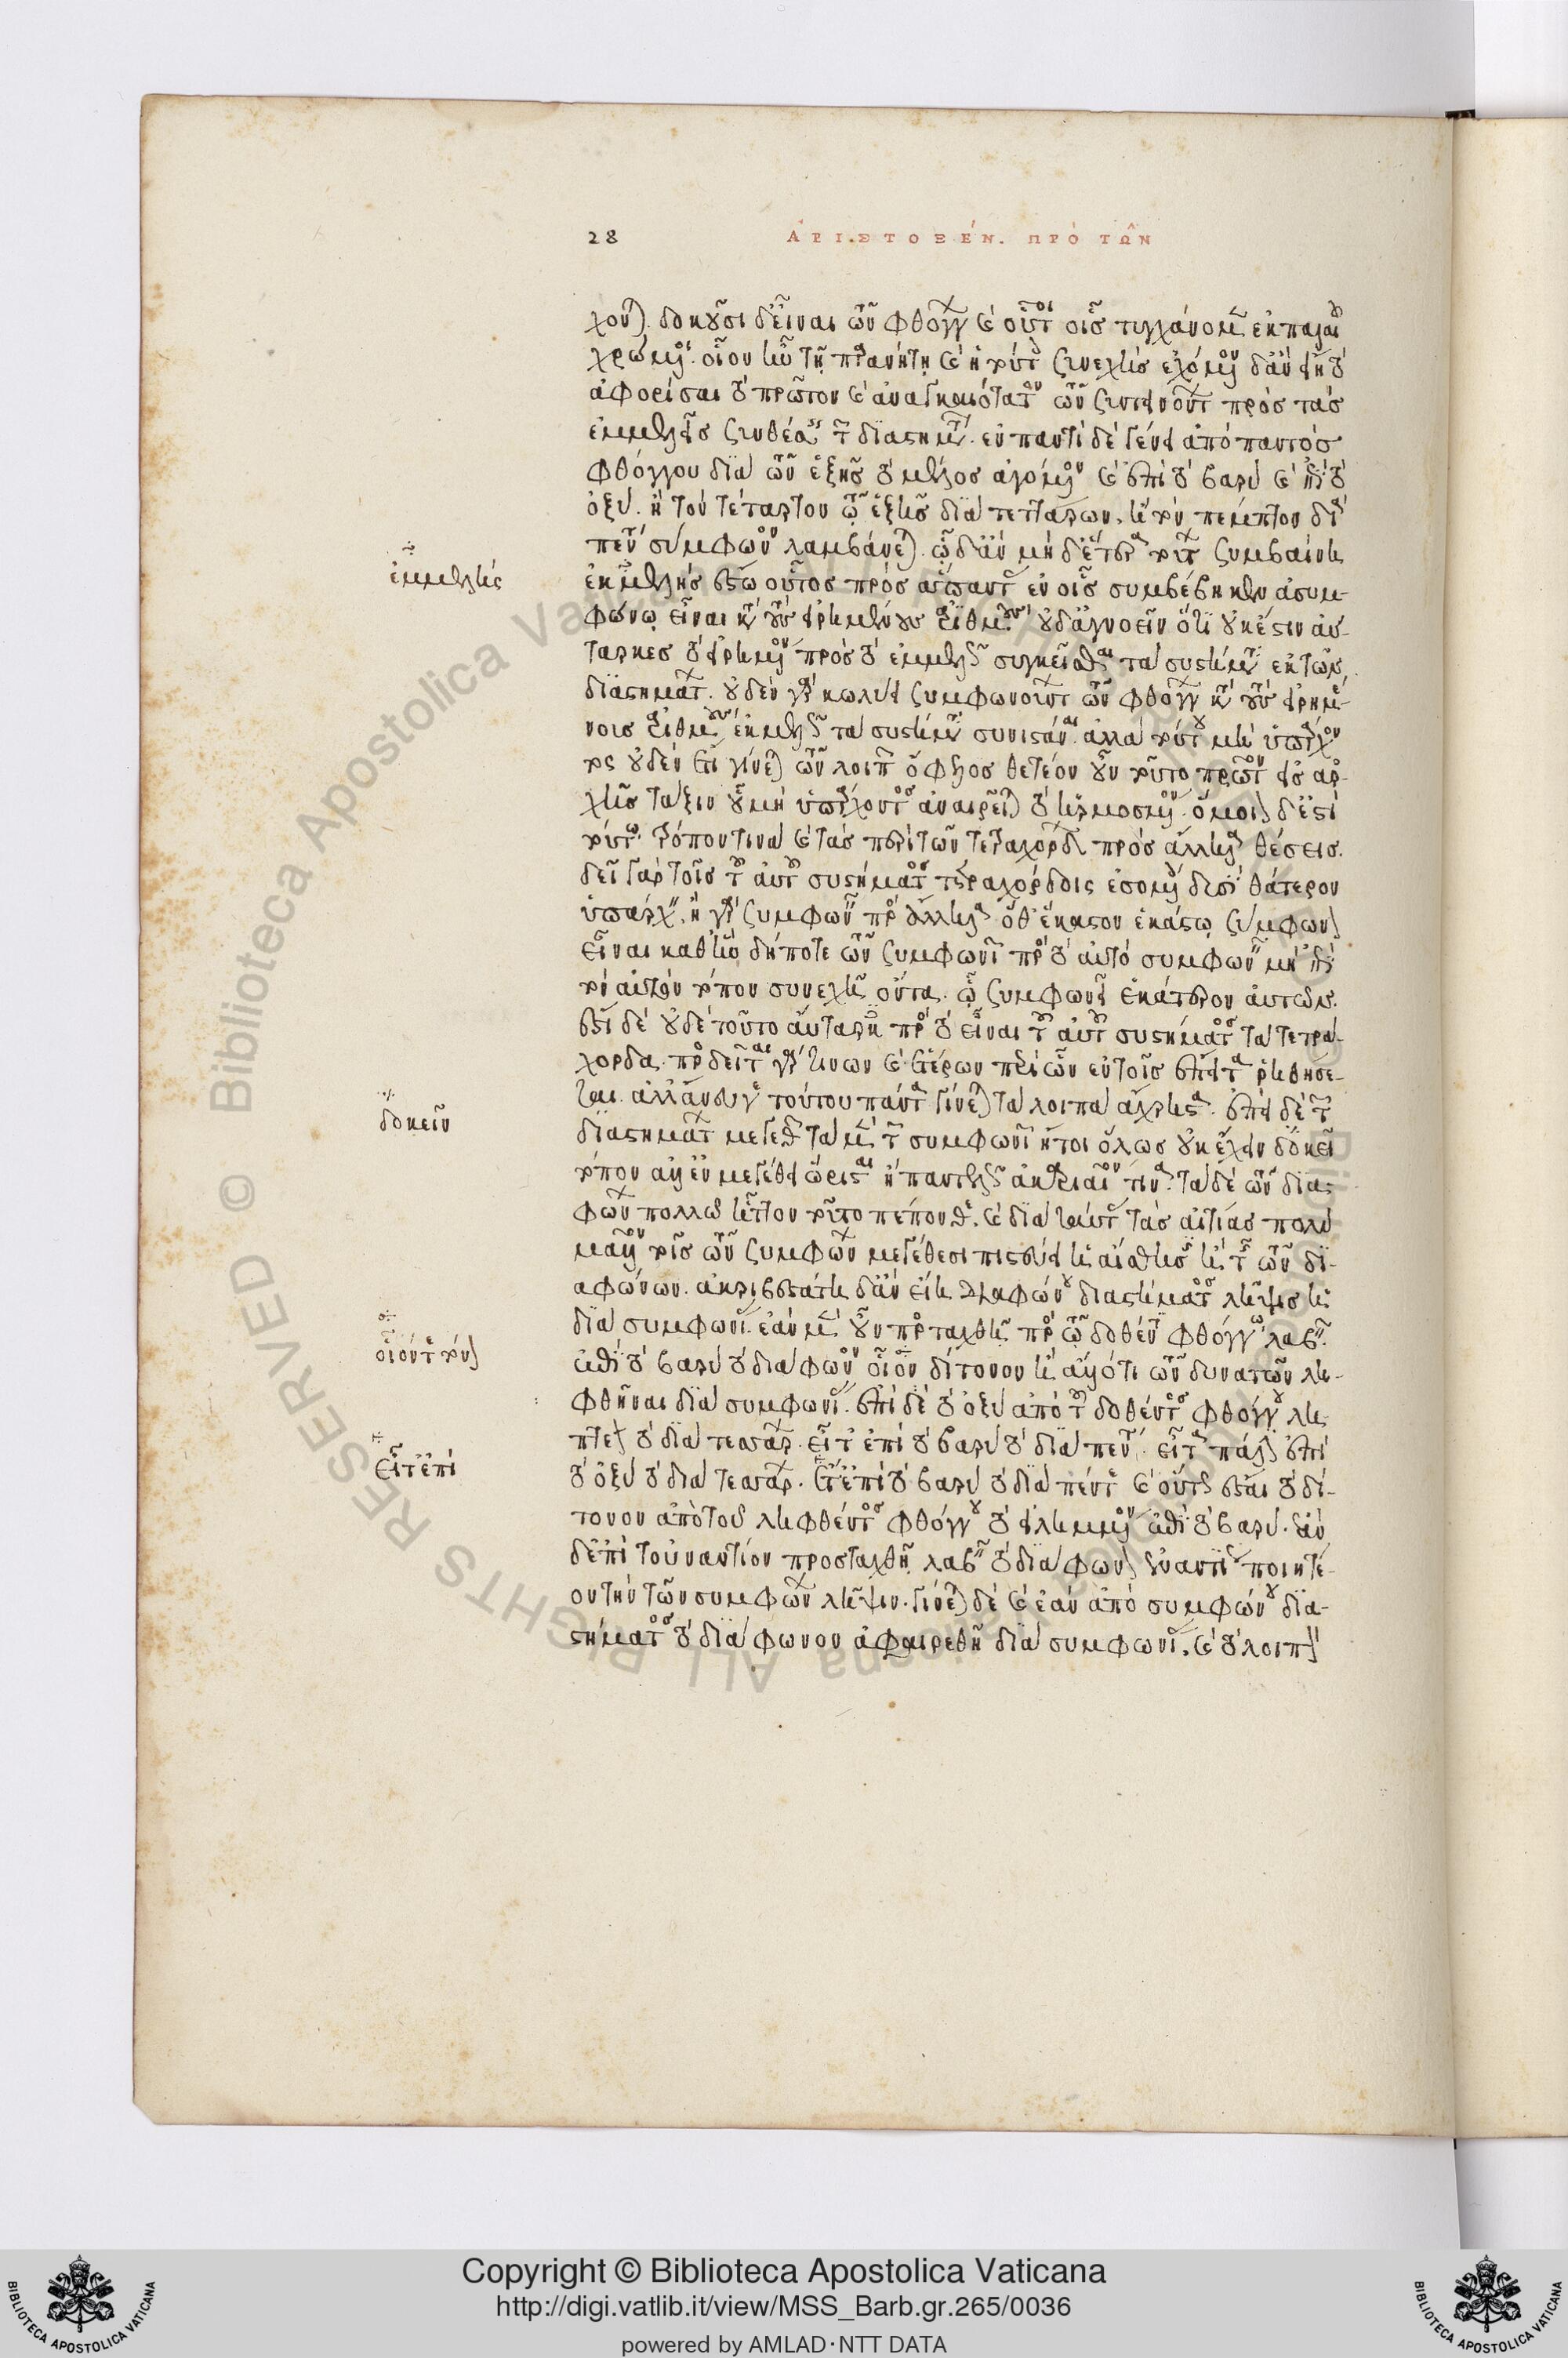 28 ΑΡΙΣΤΟΞΕΝ. ΠΡΟ ΤΩΝ
χονται. δοκοῦσι δ' εἶναι τῶν φθόγγων καὶ οὗτοι οἷς τυγχάνομεν ἐκ παλαιοῦ
ἀφορίσαι τὸ πρῶτον καὶ ἀναγκαιότατον τῶν συντεινόντων πρὸς τὰς
ἐμμελεῖς συνθέσεις τῶν διαστημάτων. ἐν παντὶ δὲ γένει ἀπὸ παντὸς
φθόγγου διὰ τῶν ἑξῆς τὸ μέλος ἀγόμενον καὶ ἐπὶ τὸ βαρὺ καὶ ἐπὶ τὸ
ὀξὺ. ἢ τὸν τέταρτον τῶν ἑξῆς διὰ τεττάρων. ἢ τὸν πέμπτον διὰ
πέντε σύμφωνον λαμβανέτω. ᾧ δ' ἂν μηδέτερα τούτων συμβαίνῃ
ἐμμελής
ἐκμελὴς ἔστω οὗτος πρὸς ἅπαντας ἐν οἷς συμβέβηκεν ἀσυμ-
φώνῳ εἶναι κατὰ τοὺς εἰρημένους ἀριθμούς. οὐ δ' ἀγνοεῖν ὅτι οὐκ ἔστιν αὔ-
ταρκες τὸ εἰρημένον πρὸς τὸ ἐμμελῶς συγκεῖσθαι τὰ συστήματα ἐκ τῶν
διαστημάτων. οὐδὲν γὰρ κωλύει συμφωνούντων τῶν φθόγγων κατὰ τοὺς εἰρημέ-
νοις ἀριθμοὺς ἐκμελῶς τὰ συστήματα συνιστάναι. ἀλλὰ τούτου μὴ ὑπάρχον-
τος οὐδὲν ἔτι γίνεται τῶν λοιπῶν ὄφελος θετέον οὖν τοῦτο πρῶτον εἰς ἀρ-
χῆς τάξιν οὗ μὴ ὑπάρχοντος ἀναιρεῖται τὸ ἡρμοσμένον. ὅμοιον δ' ἐστὶ
τούτῳ τρόπον τινὰ καὶ τὰς περὶ τῶν τετραχόρδων πρὸς ἄλληλα θέσεις.
δεῖ γὰρ τοῖς τοῦ αὐτοῦ συστήματος τετραχόρδοις ἐσομένοις δυοῖν θάτερον
ὑπάρχειν. ἢ γὰρ συμφωνεῖν πρὸς ἄλληλα ὅθ' ἕκαστον ἑκάστῳ σύμφωνον
εἶναι καθ' ἣν δήποτε τῶν συμφωνιῶν ἢ πρὸς τὸ αὐτὸ συμφωνεῖν μὴ ἐπὶ
τὸν αὐτὸν τόπον συνεχῆ ὄντα. ᾧ συμφωνεῖ ἑκάτερον αὐτῶν.
ἔστι δὲ οὐδὲ τοῦτο αὔταρκες πρὸς τὸ εἶναι τοῦ αὐτοῦ συστήματος τὰ τετρά-
χορδα. προσδεῖται γάρ τινων καὶ ἑτέρων περὶ ὧν ἐν τοῖς ἔπειτα ῥηθήσε-
ται. ἀλλ' ἄνευ γε τούτου πάντα γίνεται τὰ λοιπὰ ἄχρηστα. ἐπεὶ δὲ τῶν
δοκεῖν
διαστημάτων μεγεθῶν τὰ μὲν τῶν συμφωνιῶν ἤτοι ὅλως οὐκ ἔχειν δοκεῖ
τόπον ἀλλ' ἑνὶ μεγέθει ὥρισται ἢ παντελῶς ἀκαριαῖόν τινα. τὰ δὲ τῶν δια-
φώνων πολλῷ ἧττον τοῦτο πέπονθε. καὶ διὰ ταύτας τὰς αἰτίας πολὺ
μᾶλλον τοῖς τῶν συμφώνων μεγέθεσι πιστεύει ἡ αἴσθησις ἢ τοῖς τῶν δι-
αφώνων. ἀκριβεστάτη δ' ἂν εἴη διαφώνου διαστήματος λῆψις ἡ
διὰ συμφωνίας. ἐὰν μὲν οὖν προσταχθῇ πρὸς τῷ δοθέντι φθόγγῳ λαβεῖν
οἷόν τε τόνον
ἐπὶ τὸ βαρὺ τὸ διάφωνον οἷον δίτονον ἢ ἄλλο τι τῶν δυνατῶν λη-
φθῆναι διὰ συμφωνίας. ἐπὶ δὲ τὸ ὀξὺ ἀπὸ τοῦ δοθέντος φθόγγου λη-
πτέον τὸ διὰ τεσσάρων. εἶτ' ἐπὶ τὸ βαρὺ τὸ διὰ πέντε. εἶτα πάλιν ἐπὶ
εἶτ' ἐπὶ
τὸ ὀξὺ τὸ διὰ τεσσάρων. εἶτ' ἐπὶ τὸ βαρὺ τὸ διὰ πέντε καὶ οὕτως ἔσται τὸ δί-
τονον ἀπὸ τοῦ ληφθέντος φθόγγου τὸ εἰλημμένον ἐπὶ τὸ βαρύ. ἐὰν
δ' ἐπὶ τοὐναντίον προσταχθῇ λαβεῖν τὸ διάφωνον ἐναντίως ποιητέ-
ον τὴν τῶν συμφώνων λῆψιν. γίνεται δὲ καὶ ἐὰν ἀπὸ συμφώνου δια-
στήματος τὸ διάφωνον ἀφαιρεθῇ διὰ συμφωνίας. καὶ τὸ λοιπὸν
BIBLIOTECA APOSTOLICA VATICANA
Copyright © Biblioteca Apostolica Vaticana
http://digi.vatlib.it/view/MSS_Barb.gr.265/0036
powered by AMLAD·NTT DATA
BIBLIOTECA APOSTOLICA VATICANA
© Biblioteca Apostolica Vaticana ALL RIGHTS RESERVED